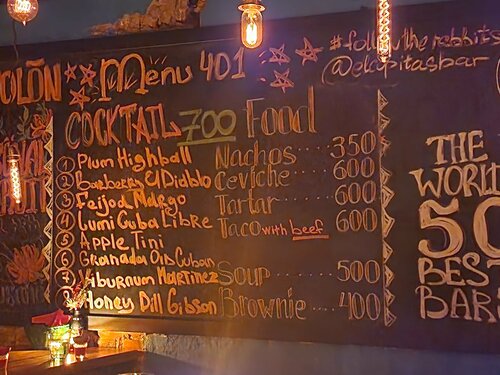 OLŌN Menu 401
#follow the rabbits
@elcopitasbar
COCKTAIL 700 Food
1 Plum Highball
2 Barberry El Diablo
3 Feijoa Margo
4 Lumi Cuba Libre
5 Apple Tini
6 Granada Old Cuban
7 Viburnum Martinez
8 Honey Dill Gibson
Nachos 350
Ceviche 600
Tartar 600
Taco with beef 600
Soup 500
Brownie 400
THE
WORLD
50
BEST
BARS